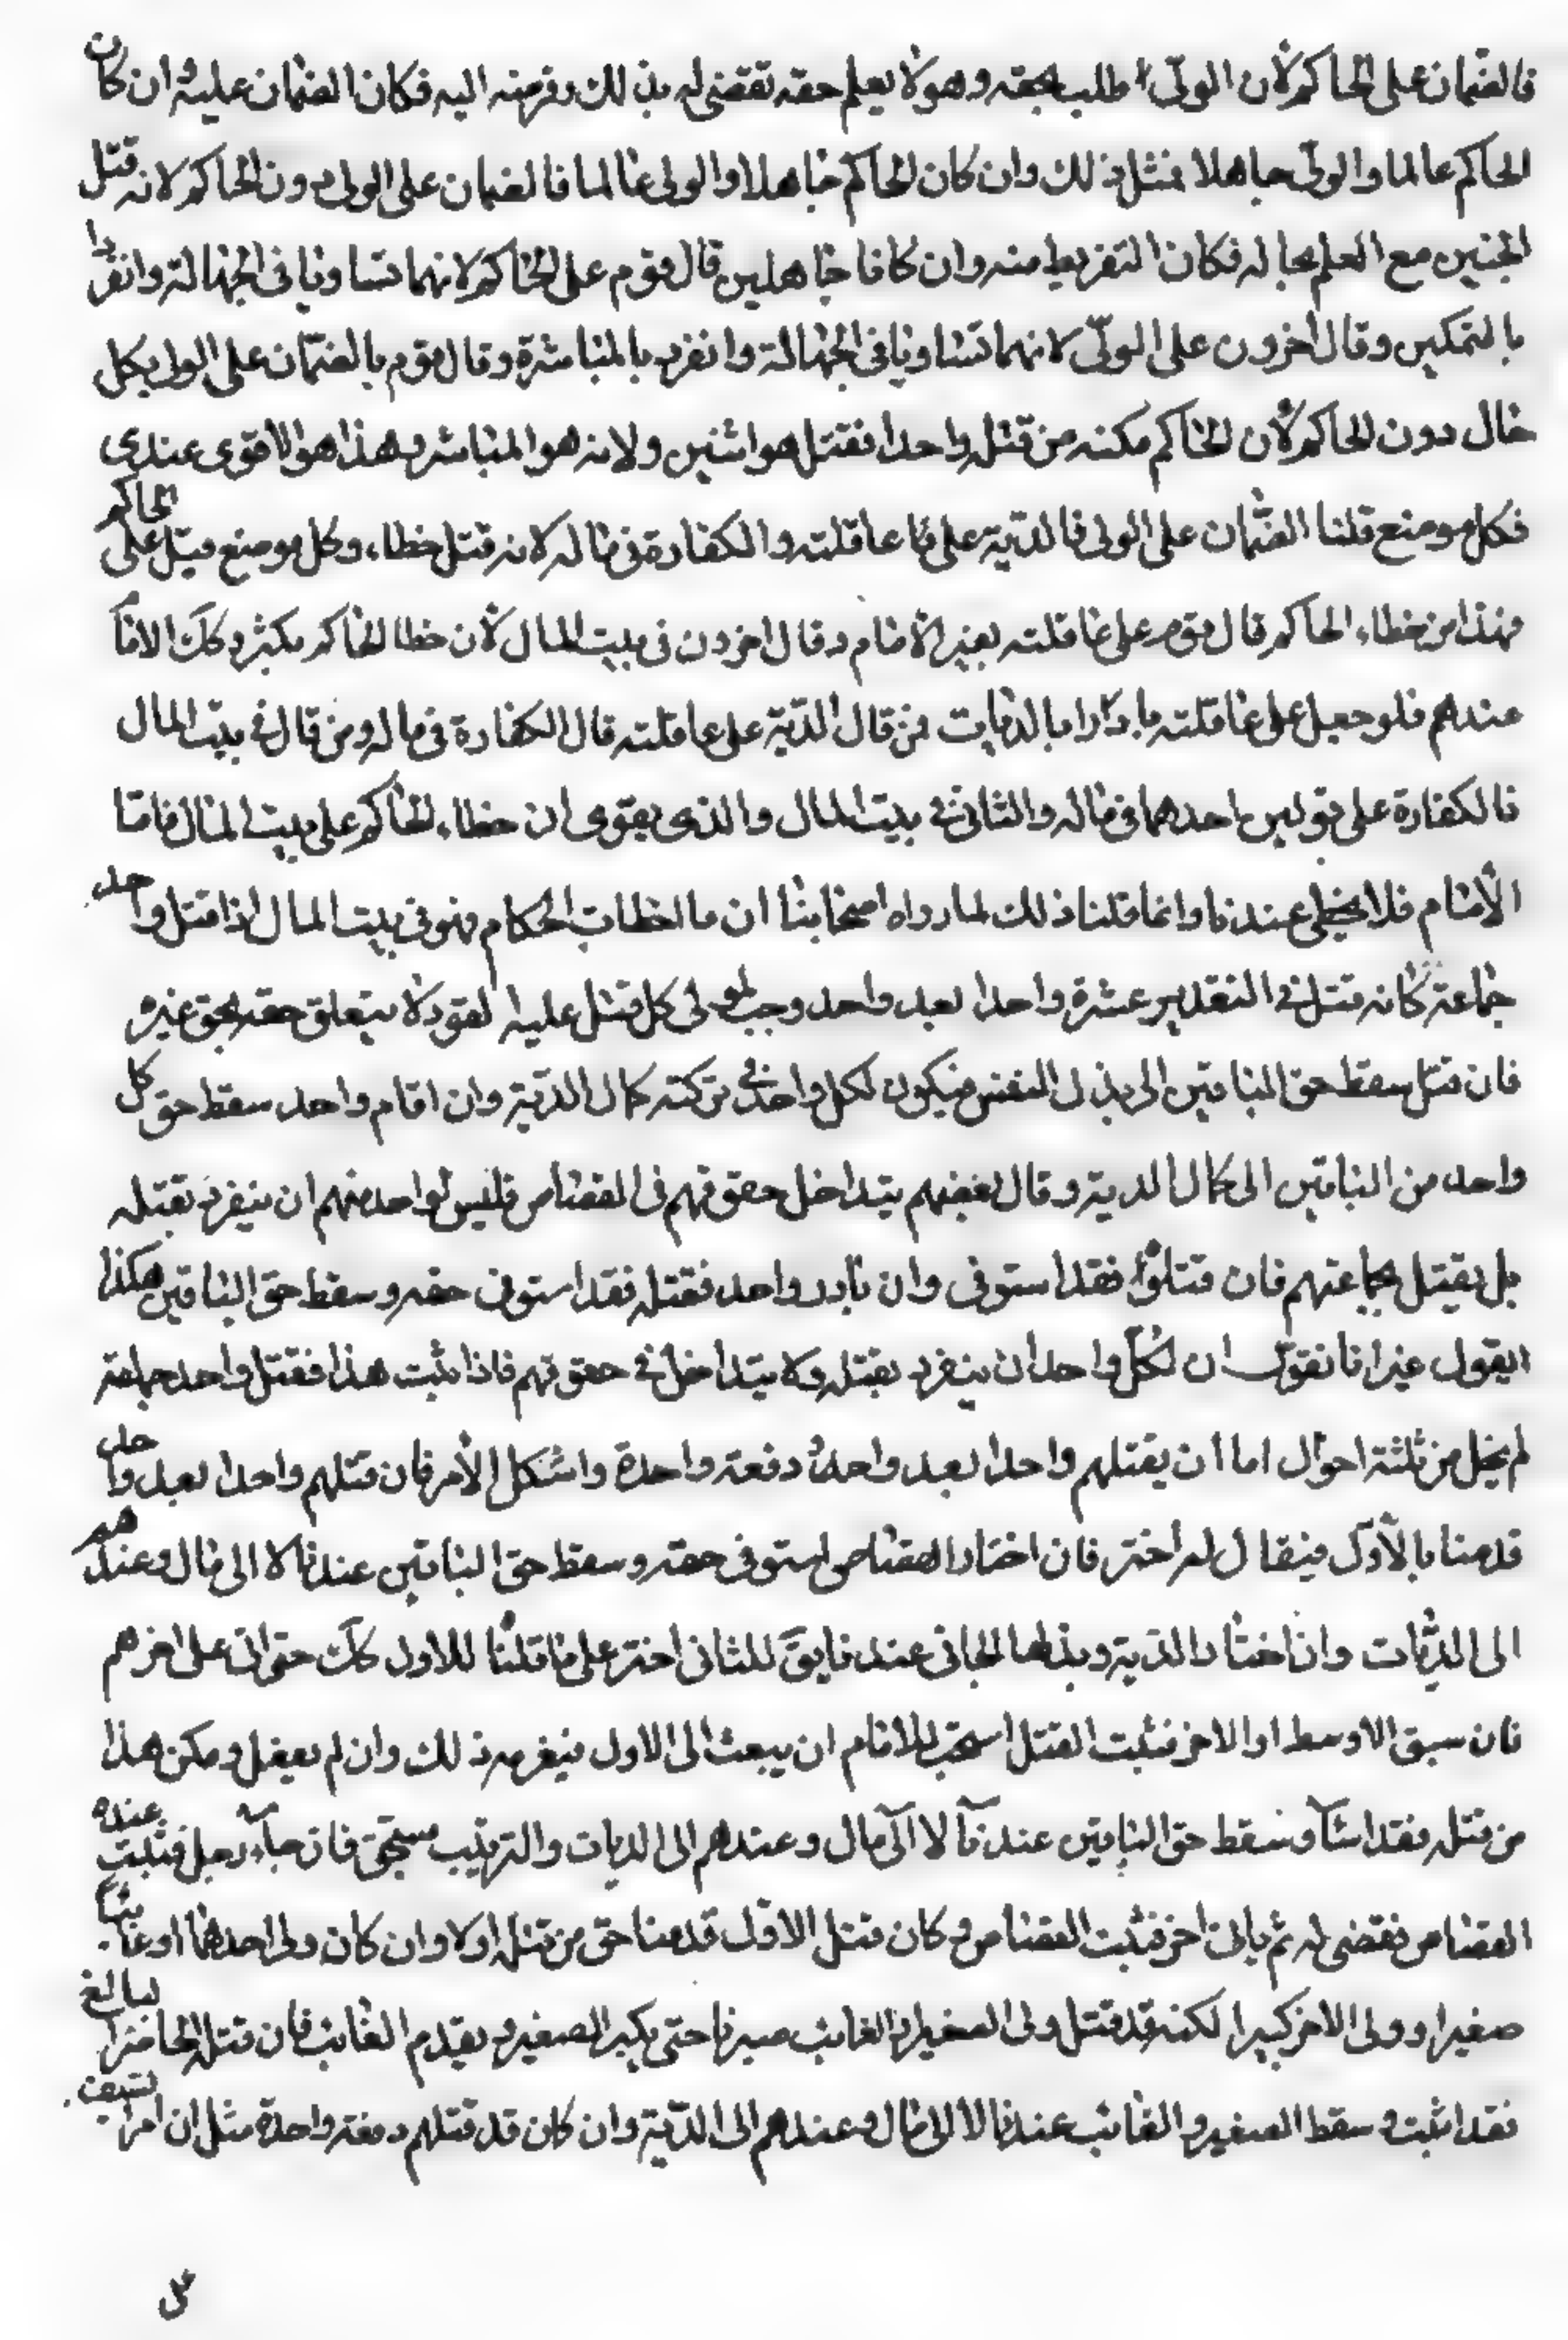 فالضمان على الحاكم لأن الولي طلب بحقه وهو لا يعلم حقه تقضى له بذلك وفرضه اليه فكان الضمان عليه وان كان
الحاكم عالما والولي جاهلا فمثل ذلك وان كان الحاكم جاهلا والولي عالما فالضمان على الولي دون الحاكم لانه قتل
الجنين مع العلم بحاله فكان التفريط منه وان كانا جاهلين قال قوم على الحاكم لانهما تساويا في الجهالة وانفردا
بالتمكين وقال أخرون على الولي لانهما تساويا في الجهالة وانفرد بالمباشرة وقال قوم بالضمان على الولي بكل
حال دون الحاكم لأن الحاكم مكنه من قتل واحد فقتل هو اثنين ولانه هو المباشر وهذا هو الاقوى عندي
فكل موضع قلنا الضمان على الولي فالدية على عاقلته والكفارة في ماله لانه قتل خطاء، وكل موضع قيل على الحاكم
فهذا من خطاء الحاكم قال قوم على عاقلته بغير الأمام وقال اخرون في بيت المال لأن خطا الحاكم يكثر وكك الاما
عندهم فلو جعل على عاقلته بالديات فمن قال الدية على عاقلته قال الكفارة في ماله ومن قال في بيت المال
فالكفارة على قولين احدهما في ماله والثاني في بيت المال والذي يقوى ان خطاء الحاكم على بيت المال فاما
الأمام فلا يخطى عندنا وانما قلنا ذلك لما رواه اصحابنا ان ما اخطات الحكام فهو في بيت المال اذا قتل واحد
جماعة كانه قتل في التقدير عشرة واحدا بعد واحد وجب لولي كل قتل عليه القود لا يتعلق حقه بحق غيره
فان قتل سقط حق الباقين الى بذل النفس فيكون لكل واحد في تركته كمال الدية وان اقام واحد سقط حق كل
واحد من الباقين الى كمال الدية وقال بعضهم يتداخل حقوقهم في القصاص فليس لواحد منهم ان ينفرد بقتله
بل يقتل بجماعتهم فان قتلوا فقد استوفى وان بادر واحد فقتله فقد استوفى حقه وسقط حق الباقين هكذا
نقول غير انا نقول ان لكل واحد ان ينفرد بقتله ولا يتداخل في حقوقهم فاذا ثبت هذا فقتل واحد جماعة
لم يخل من ثلثة احوال اما أن يقتلهم واحدا بعد واحد او دفعة واحدة واشكل الأمر فان قتلهم واحدا بعد واحد
قدمنا بالأول فيقال له اختر فان اختار القصاص استوفى حقه وسقط حق الباقين عندنا لا الى مال وعندهم
الى الديات وان اختار الدية وبذلها الجاني عندنا يق للثاني اختر على ما قلنا للاول كك حتى اتى على اخرهم
فان سبق الاوسط او الاخر فثبت القتل استحب للامام ان يبعث الى الاول فيغرمه ذلك وان لم يفعل ومكن هذا
من قتله فقد اساء وسقط حق الباقين عندنا لا الى مال وعندهم الى الديات والترتيب مستحق فان جاء رجل فثبت عنده
القصاص فقضى له ثم ياتى اخر فثبت القصاص وكان قتل الاول قدمنا حق من قتله اولا وان كان ولى احدهما او غايبا
صغيرا وولى الاخر كبيرا لكنه قد قتل ولى الصغير او الغائب صبرنا حتى يكبر الصغير ويقدم الغائب فان قتله الحاضر البالغ
فقد اثبت وسقط الصغير والغائب عندنا لا الى مال وعندهم الى الدية وان كان قد قتلهم دفعة واحدة مثل ان امر